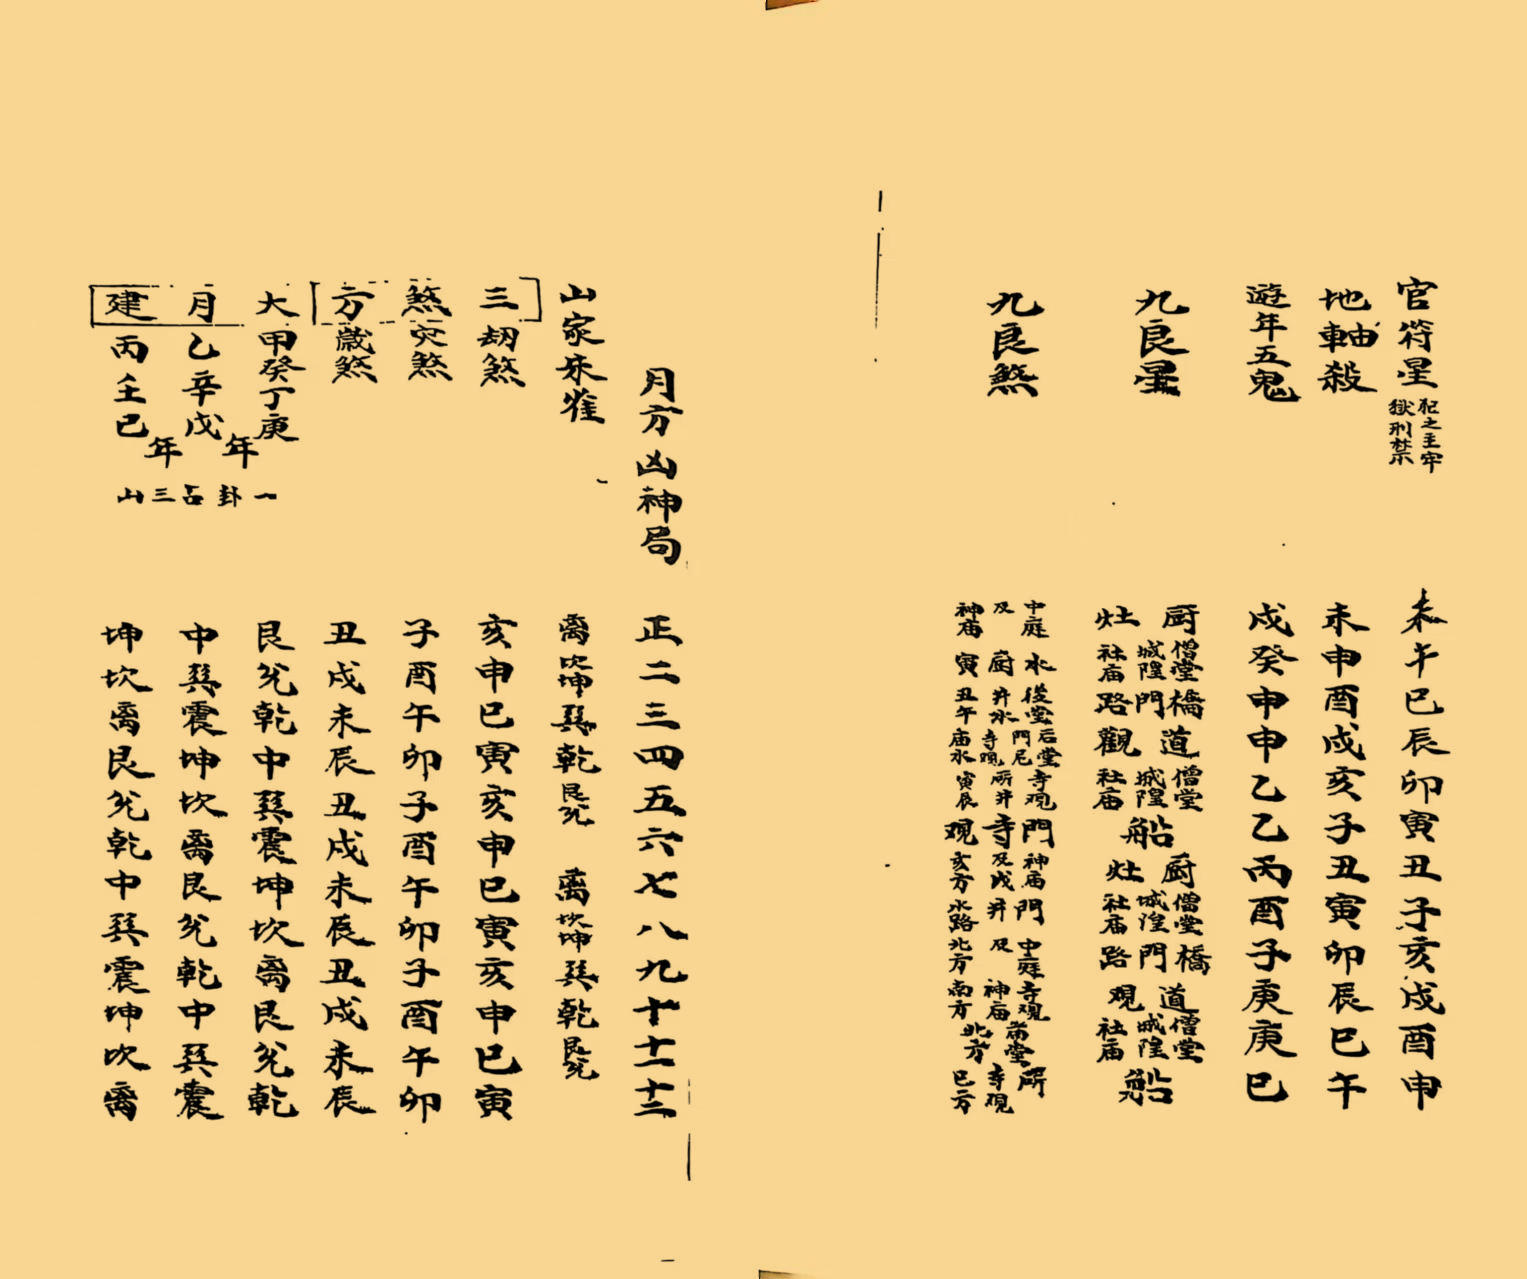 官符星 犯之主牢獄刑禁 未午巳辰卯寅丑子亥戌酉申
地軸殺 未申酉戌亥子丑寅卯辰巳午
遊年五鬼 戌癸申申乙乙丙酉子庚庚巳
九良星 厨灶 僧堂城隍社庙 橋門路 道觀 僧堂城隍社庙 船 厨灶 僧堂城隍社庙 橋門路 道观 僧堂城隍社庙 船
九良煞 中庭及神庙 水厨寅 後堂井水丑午 后堂門尼寺观庙水 寺观所井寅辰 門寺观 神庙及戌亥方 門井水路 中庭及北方 寺观神庙南方 堂北方 所寺观巳方
月方凶神局 正二三四五六七八九十十一十二
山家朱雀 离 坎坤 巽 乾 艮兑 离 坎坤 巽 乾 艮兑
三 劫煞 亥申巳寅亥申巳寅亥申巳寅
煞 灾煞 子酉午卯子酉午卯子酉午卯
方 歲煞 丑戌未辰丑戌未辰丑戌未辰
大 甲癸丁庚年 艮兑乾中巽震坤坎离艮兑乾
月 乙辛戊年 中巽震坤坎离艮兑乾中巽震
建 丙壬己 坤坎离艮兑乾中巽震坤坎离
一卦占三山